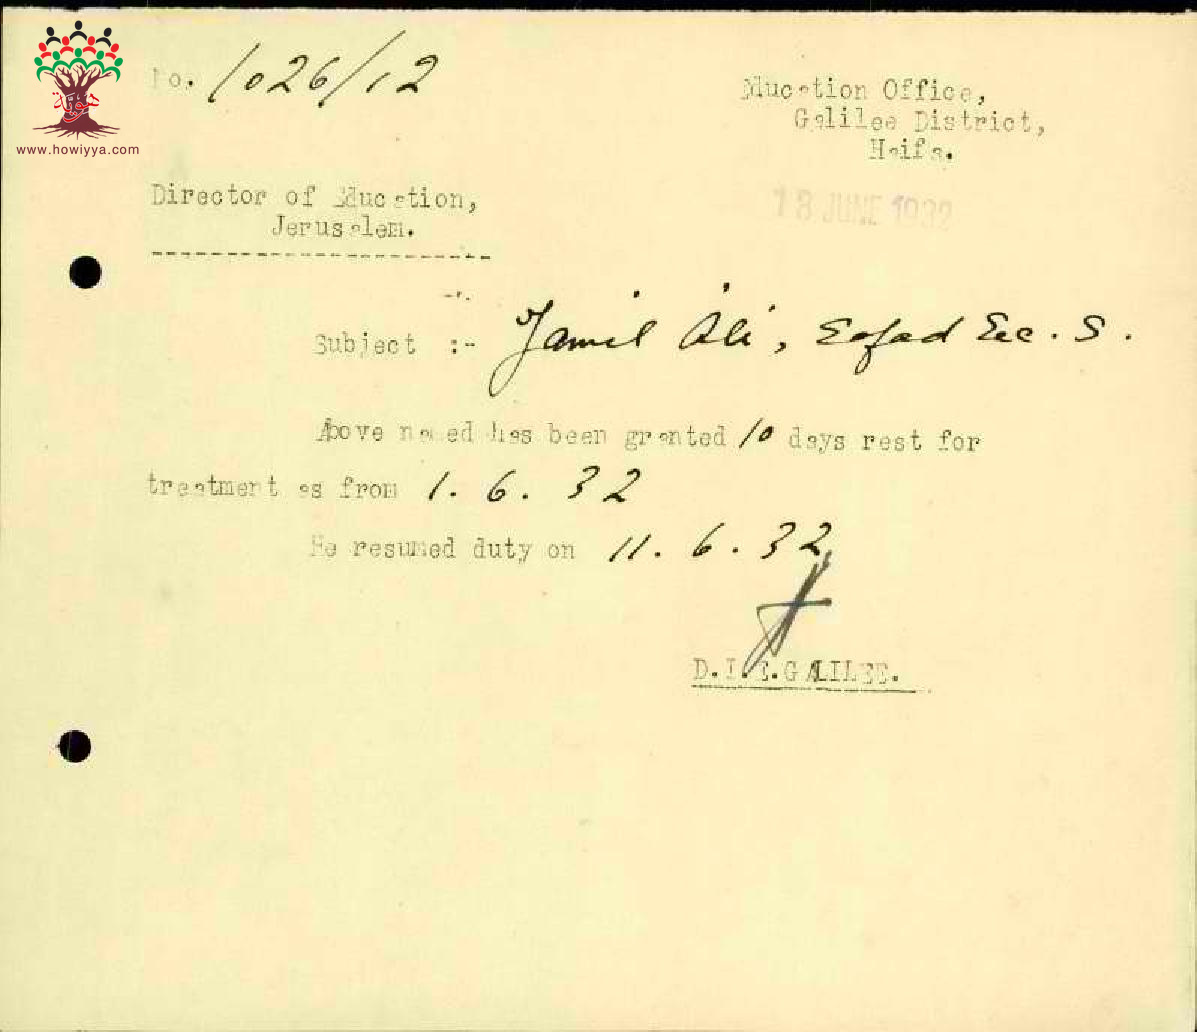 No. 1026/12
Education Office,
Galilee District,
Haifa.
www.howiyya.com
Director of Education,
Jerusalem.
18 JUNE 1932
Subject :- Jamil Ali, Safad Sec. S.
Above named has been granted 10 days rest for
treatment as from 1. 6. 32
He resumed duty on 11. 6. 32
D.I.E.GALILEE.